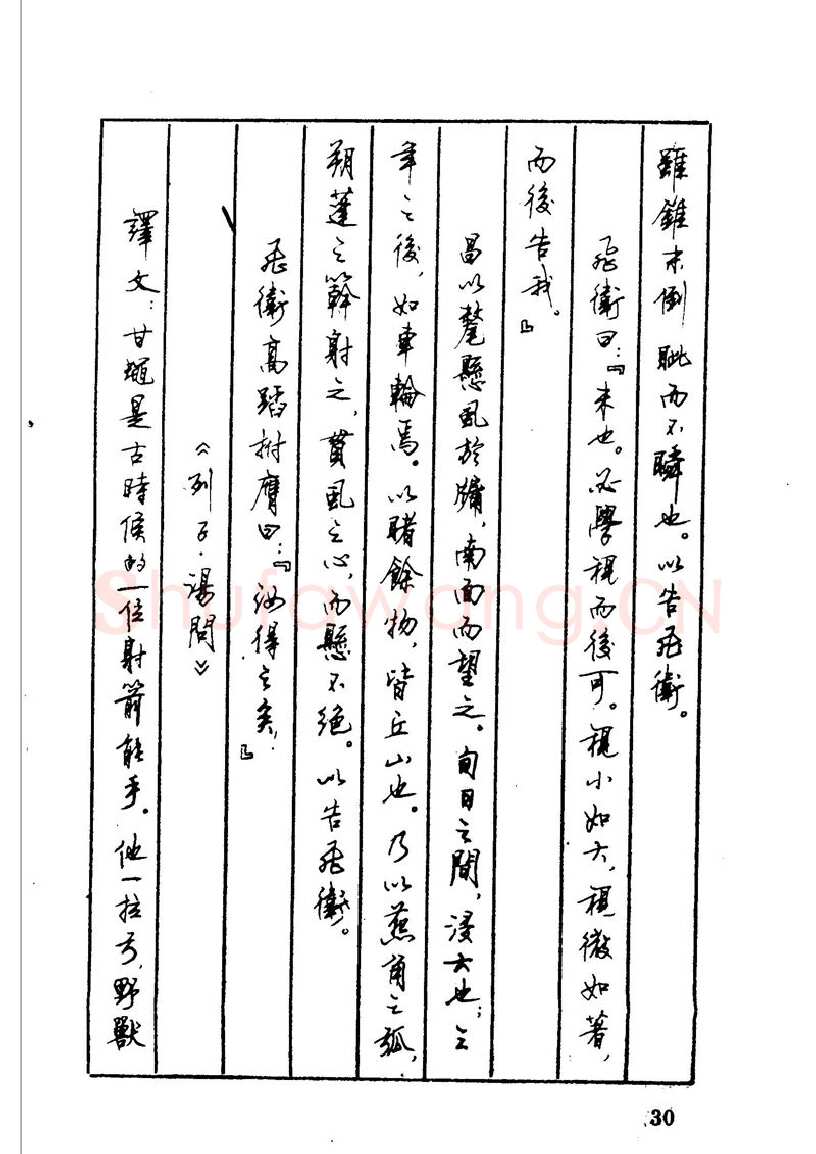 雖錐末倒眦而不瞬也。以告飛衛。
飛衛曰：『未也。必學視而後可。視小如大，視微如著，
而後告我。』
昌以氂懸虱於牖，南面而望之。旬日之間，浸大也；三
年之後，如車輪焉。以睹餘物，皆丘山也。乃以燕角之弧，
朔蓬之簳射之，貫虱之心，而懸不絕。以告飛衛。
飛衛高蹈拊膺曰：『汝得之矣！』
《列子·湯問》
譯文：甘蠅是古時候的一位射箭能手。他一拉弓，野獸
30
Shufawang.CN